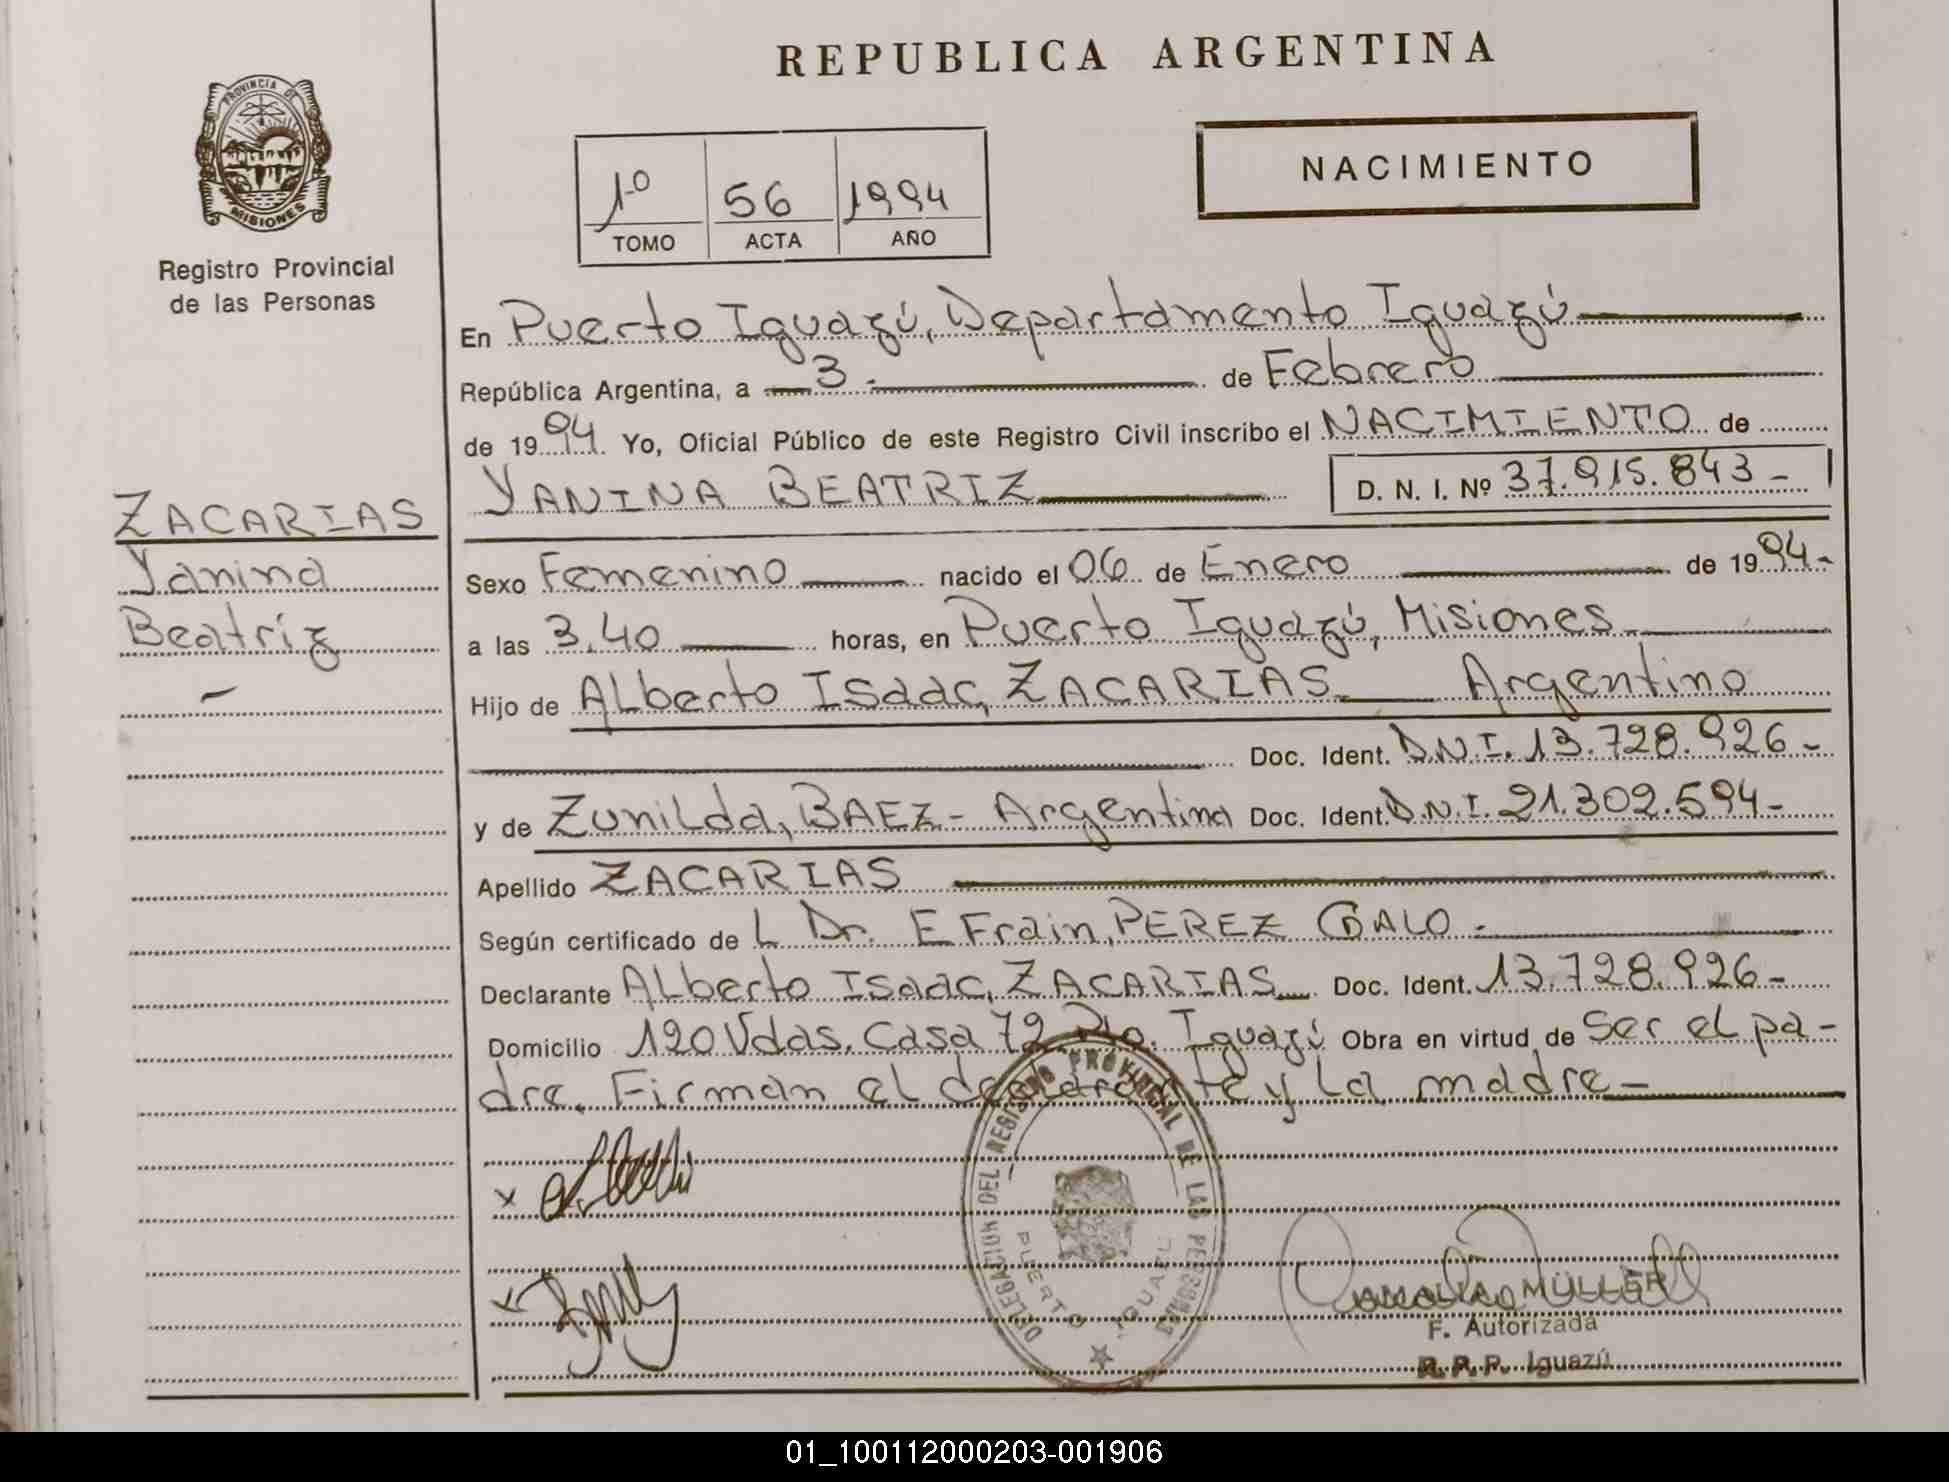 REPUBLICA ARGENTINA
PROVINCIA DE
MISIONES
Registro Provincial
de las Personas
NACIMIENTO
1º 56 1994
TOMO ACTA AÑO
En Puerto Iguazú, Departamento Iguazú
República Argentina, a 3 de Febrero
de 1994 Yo, Oficial Público de este Registro Civil inscribo el NACIMIENTO de
YANINA BEATRIZ D. N. I. Nº 37.915.843-
ZACARIAS
Yanina
Beatríz
Sexo Femenino nacido el 06 de Enero de 1994-
a las 3,40 horas, en Puerto Iguazú, Misiones
Hijo de Alberto Isaac, ZACARIAS Argentino
Doc. Ident. D.N.I. 13.728.926-
y de Zunilda, BAEZ- Argentina Doc. Ident. D.N.I. 21.302.594-
Apellido ZACARIAS
Según certificado de L Dr. EFrain, PEREZ
Declarante Alberto Isaac, ZACARIAS Doc. Ident. 13.728.926-
Domicilio 120 Vdas. Casa 72 Pto. Iguazú Obra en virtud de Ser el pa-
dre. Firman el declarante y La madre-
DELEGACION DEL REGISTRO PROVINCIAL DE LAS PERSONAS
PUERTO IGUAZU
AMALIA MÜLLER
F. Autorizada
R.P.P. Iguazú
01_100112000203-001906